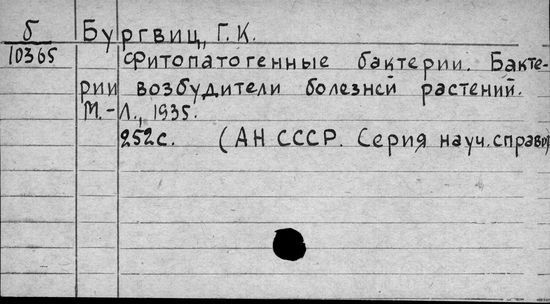 б Бургвиц, Г. К.
10365 Фитопатогенные бактерии. Бакте-
рии возбудители болезней растений.
М.-Л., 1935.
252с. (АН СССР. Серия науч.справо